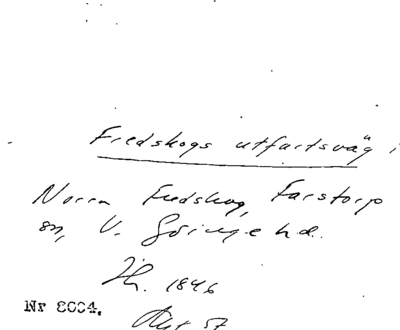 Fredskogs utfartsväg i
Norra Fredskog, Farstorp
sn, V. Göinge hd.
Jh. 1846
Nr 8004.
Akt 57